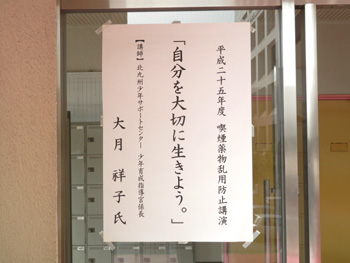 平成二十五年度 喫煙薬物乱用防止講演
「自分を大切に生きよう。」
【講師】北九州少年サポートセンター 少年育成指導官係長
大月 祥子氏